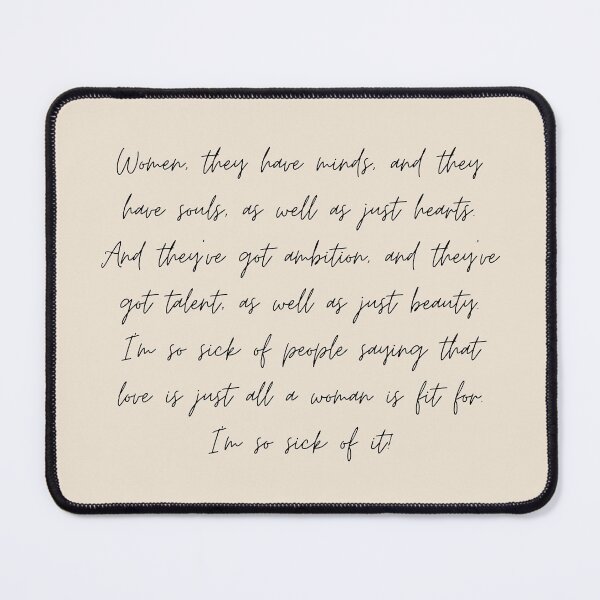 Women, they have minds, and they
have souls, as well as just hearts.
And they've got ambition, and they've
got talent, as well as just beauty.
I'm so sick of people saying that
love is just all a woman is fit for.
I'm so sick of it!